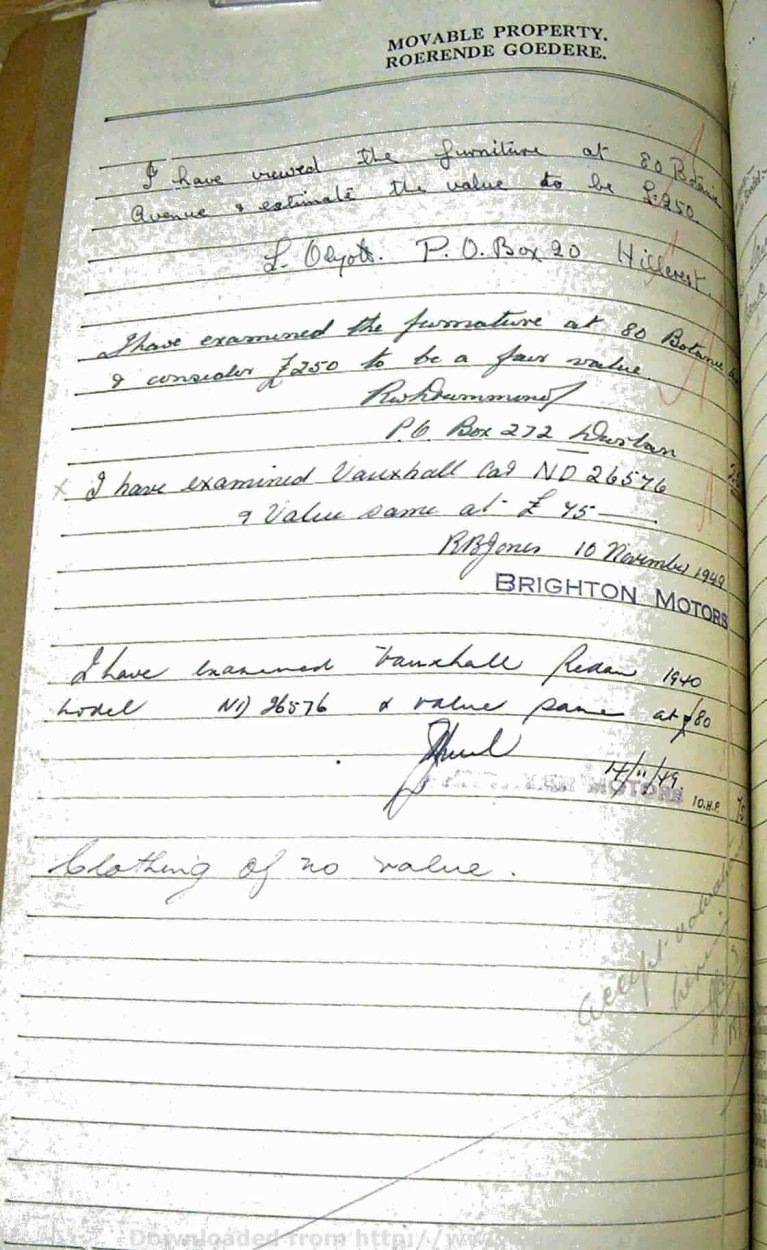 MOVABLE PROPERTY.
ROERENDE GOEDERE.
I have viewed the furniture at 80 Botanic
Avenue & estimate the value to be £250.
L. P. O. Box 20 Hillcrest.
I have examined the furnature at 80 Botanic
& consider £250 to be a fair value.
P.O. Box 272 Durban
x I have examined Vauxhall Car ND 26576
& Value same at £ 75
RBJones 10 November 1949
BRIGHTON MOTORS
I have examined Vauxhall Sedan 1940
Model ND 26576 & value same at £80
14/11/49.
MOTORS 10.H.P. 75
Clothing of no value.
Accept
Downloaded from http://www